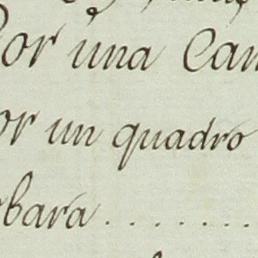 Por una Can
or un quadro
bara . . . . . . . .